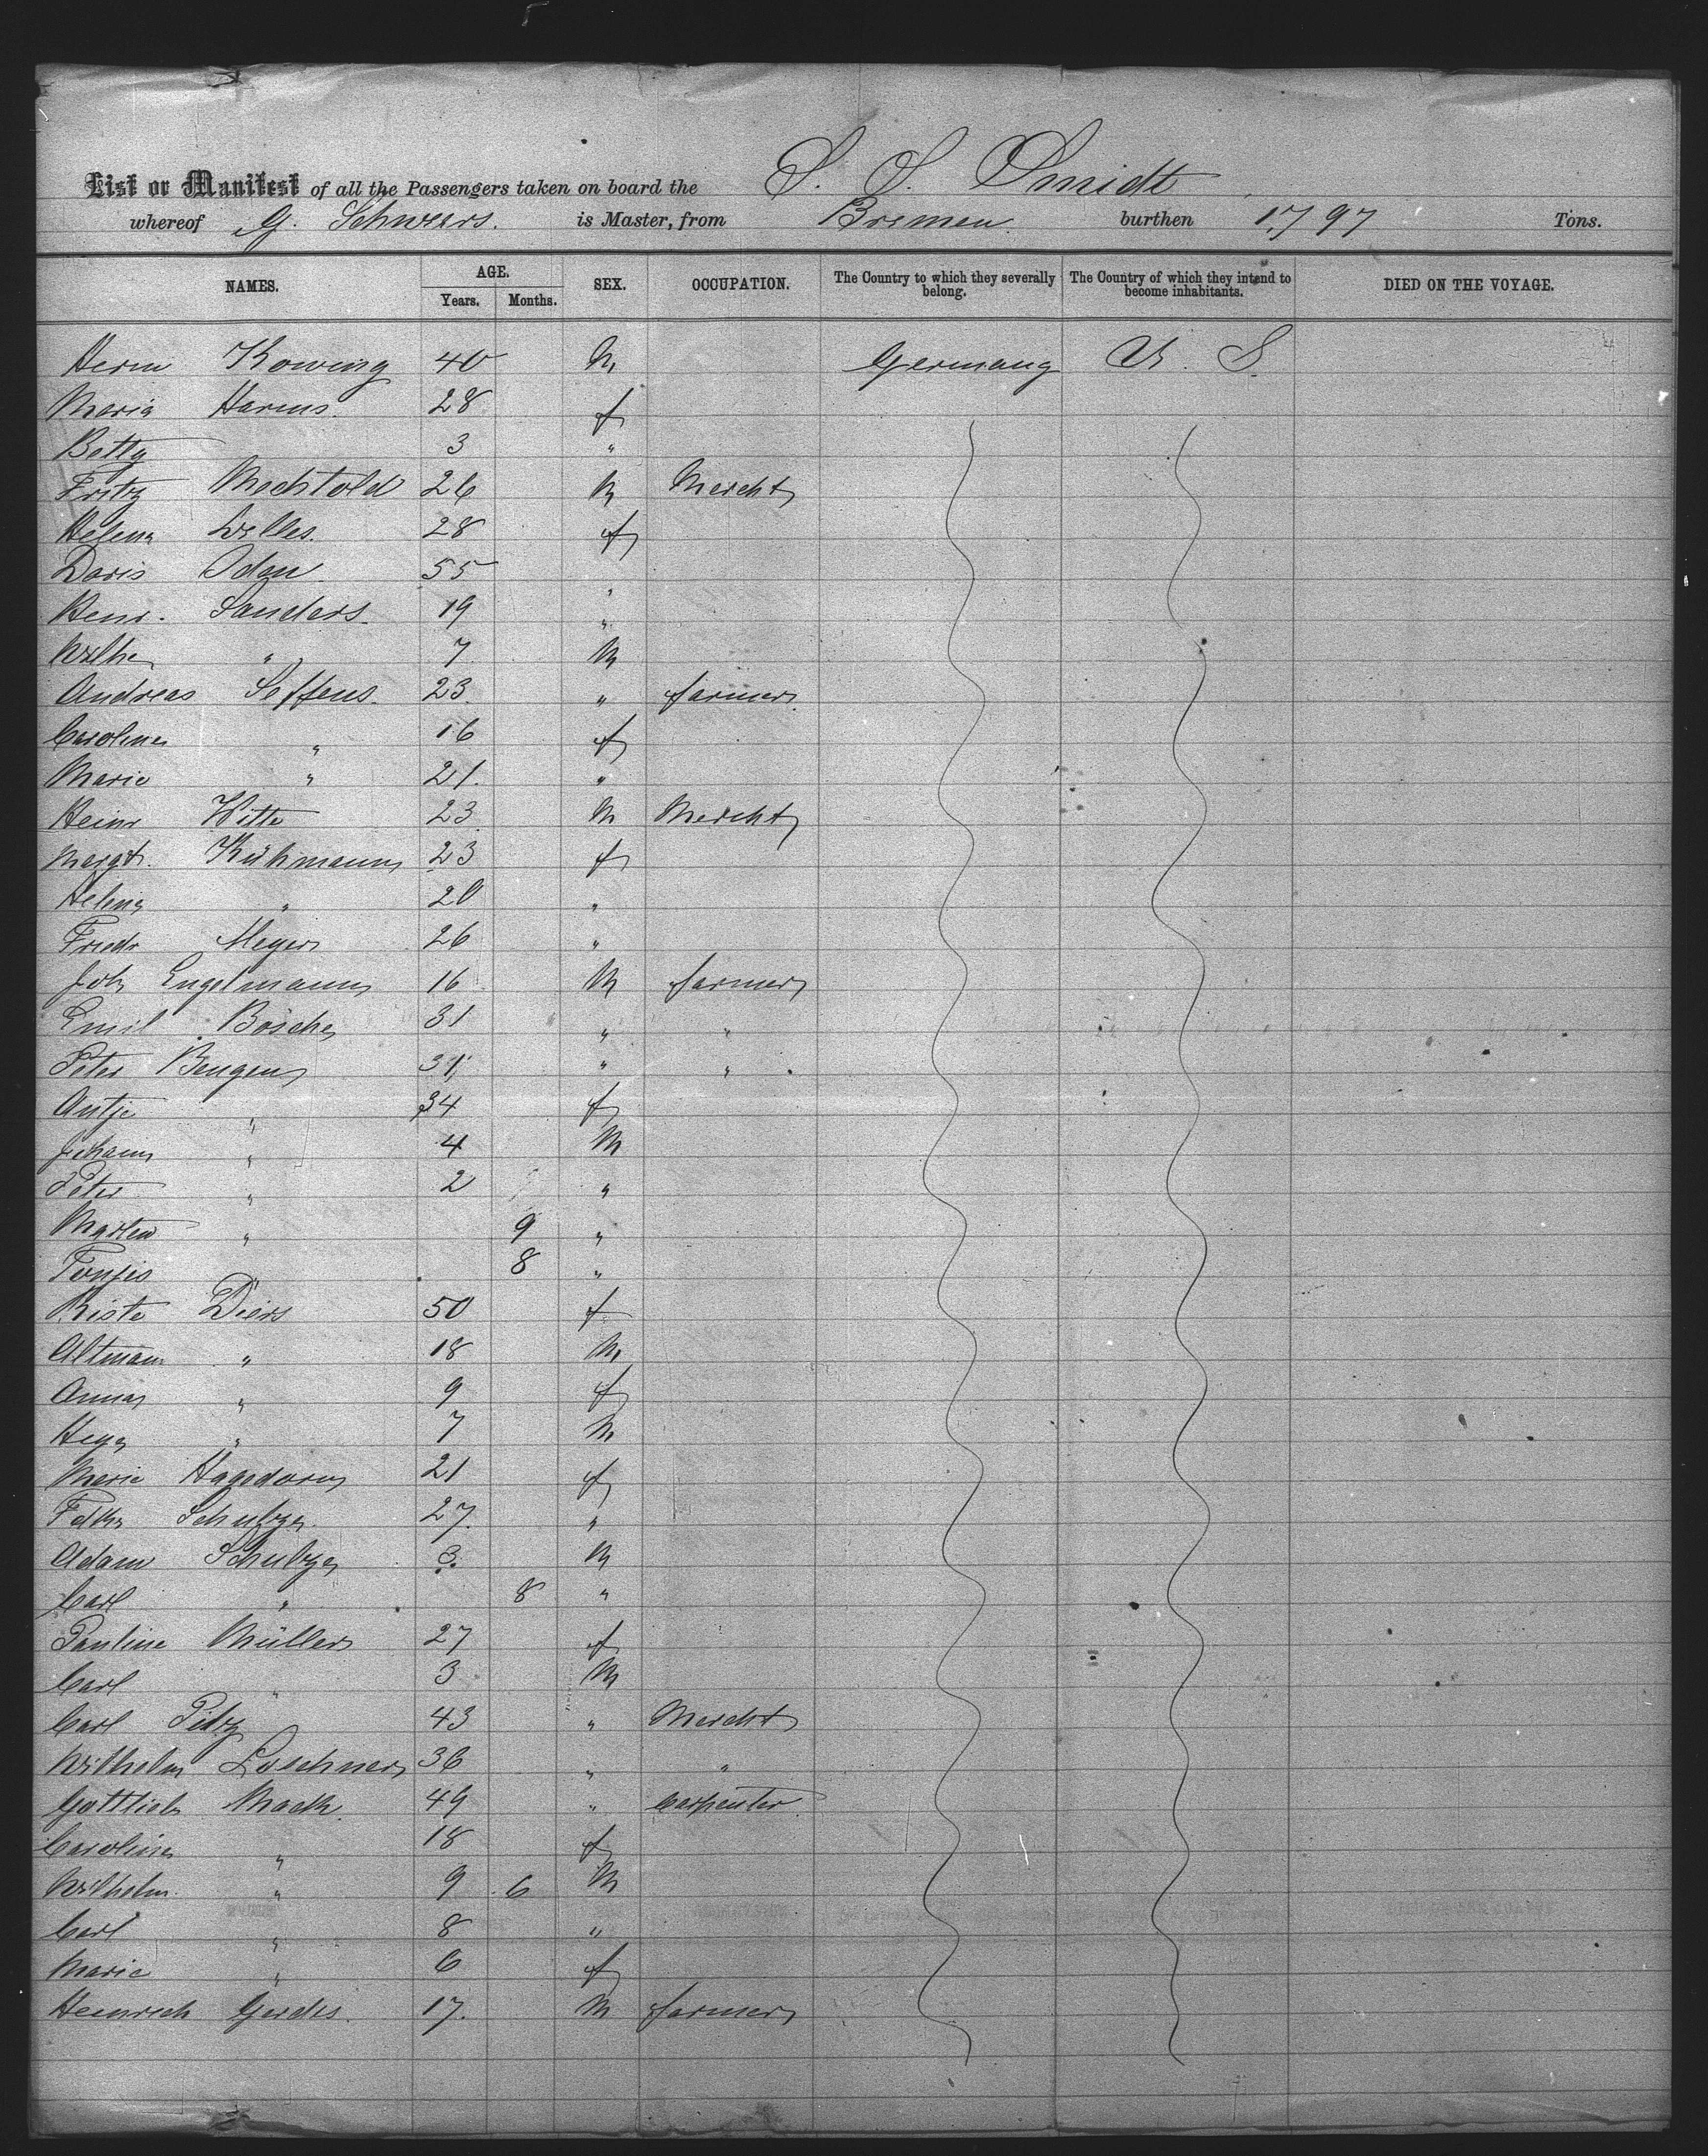 List or Manifest of all the Passengers taken on board the S. S. Smidt
whereof G. Schweers. is Master, from Bremen. burthen 1,797 Tons.
NAMES. AGE. Years. Months. SEX. OCCUPATION. The Country to which they severally belong. The Country of which they intend to become inhabitants. DIED ON THE VOYAGE.
Herm Kowing 40 M Germany U. S.
Maria Harms. 28 f
Betty 3 "
Fritz Mechtold 26 M Mercht
Helena Welles. 28 f
Doris Oden 55 "
Henr. Sanders. 19 "
Wilhe " 7 M
Andreas Seffens. 23. " farmer.
Caroline " 16 f
Marie " 21. "
Heinr Witte 23 M Mercht
Margt. Kühmann 23 f
Helena " 20 "
Friedr Meyer 26 "
Joh Engelmann 16 M farmer
Emil Bösche 31 " "
Peter Bengen 31 " "
Antje " 34 f
Johann " 4 M
Peter " 2 "
Marten " 9 "
Tonjes 8 "
Diers 50 f
Altmann " 18 M
Anna " 9 f
" 7 M
Marie Hagedorn 21 f
Schulze 27. "
Adam Schulze 3. M
Carl " 8 "
Pauline Müller 27 f
Carl " 3 M
Carl Pitz 43 " Mercht
Wilhelm Loschner 36 " "
Gottlieb Mack. 49 " Carpenter.
Caroline " 18 f
Wilhelm. " 9 6 M
Carl " 8 "
Marie " 6 f
Heinrich Gerdes. 17. M farmer